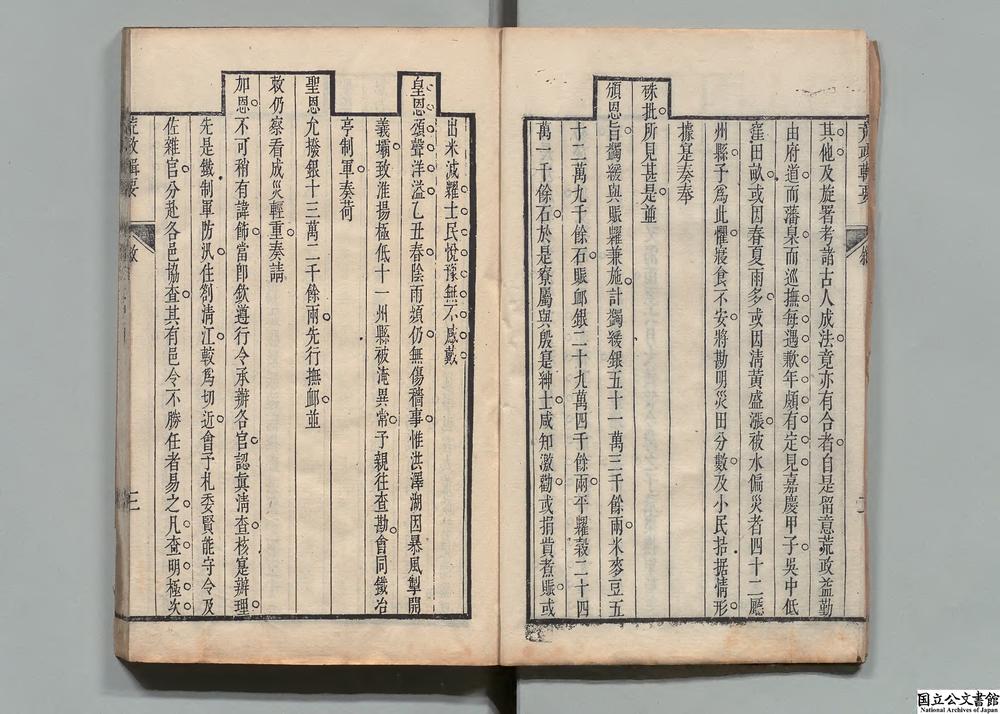 其他及旋署考諸古人成法竟亦有合者自是留意荒政益勤
由府道而藩臬而巡撫每遇歉年頗有定見嘉慶甲子吳中低
窪田畝或因春夏雨多或因清黃盛漲被水偏災者四十二廳
州縣予為此懼寢食不安將勘明災田分數及小民拮据情形
據寔奏奉
硃批所見甚是並
頒恩旨蠲緩與賑糶兼施計蠲緩銀五十一萬三千餘兩米麥豆五
十二萬九千餘石賑卹銀二十九萬四千餘兩平糶穀二十四
萬一千餘石於是寮屬與殷寔紳士咸知激勸或捐貲煮賑或
出米減糶士民悅豫無不感戴
皇恩頌聲洋溢乙丑春陰雨頻仍無傷穡事惟洪澤湖因暴風掣開
義壩致淮揚極低十一州縣被淹異常予親往查勘會同鐵冶
亭制軍奏荷
聖恩允撥銀十三萬二千餘兩先行撫卹並
敕仍察看成災輕重奏請
加恩不可稍有諱飾當卽欽遵行令承辦各官認眞清查核寔辦理
先是鐵制軍防汛住劄清江較為切近會予札委賢能守令及
佐雜官分赴各邑協查其有邑令不勝任者易之凡查明極次
荒政輯要
敘
三
国立公文書館
National Archives of Japan